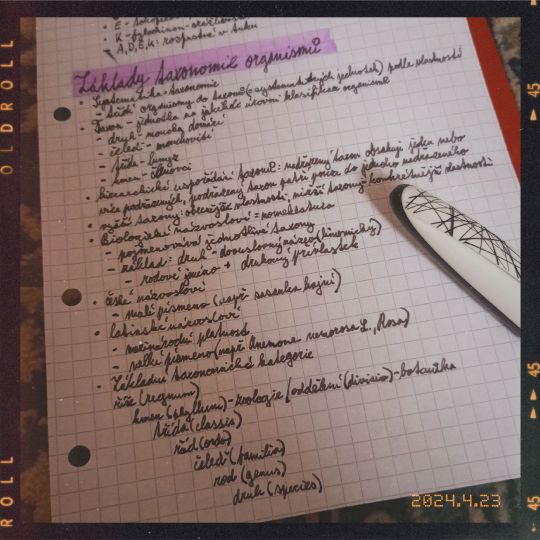 E -
K - fylochinon -
A, D, E, K: rozpustné v tuku
Základy taxonomie organismů
• Systematika = taxonomie
- třídí organismy do taxonů (= systematických jednotek) podle vlastností
• Taxon - jednotka na jakékoli úrovni klasifikace organismů
- druh - moucha domácí
- čeleď - mouchovití
- třída - hmyz
- kmen - členovci
• hierarchické uspořádání taxonů: nadřazený taxon obsahuje jeden nebo
více podřazených, podřazený taxon patří pouze do jednoho nadřazeného
• vyšší taxony: obecnější vlastnosti, nižší taxony: konkrétnější vlastnosti
• Biologické názvosloví = nomenklatura
- pojmenovává jednotlivé taxony
- základ: druh - dvouslovný název (binomický)
- rodové jméno + druhový přívlastek
• české názvosloví
- malé písmeno (např. sasanka hajní)
• latinské názvosloví
- mezinárodní platnost
- velké písmeno (např. Anemone nemorosa L., Rosa)
• Základní taxonomické kategorie
říše (regnum)
kmen (phyllum) - zoologie / oddělení (divisio) - botanika
třída (classis)
řád (ordo)
čeleď (familia)
rod (genus)
druh (species)
OLDROLL
ROLL
45
45
45
2024.4.23